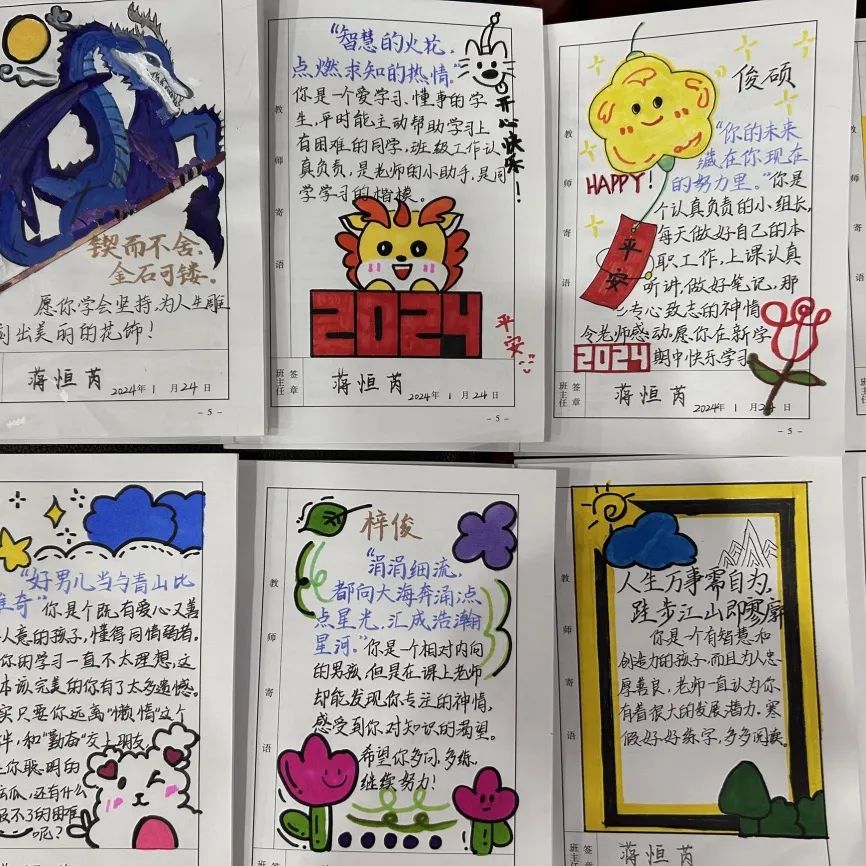 锲而不舍,
金石可镂。
愿你学会坚持,为人生雕
刻出美丽的花饰!
蒋恒芮
2024年1月24日
- 5 -
"智慧的火花,
点燃求知的热情。"
你是一个爱学习、懂事的学
生,平时能主动帮助学习上
有困难的同学,班级工作认
真负责,是老师的小助手,是同
学学习的楷模。
开心快乐!
2024
平安
教师寄语
班主任签章
蒋恒芮
2024年1月24日
- 5 -
俊硕
"你的未来
藏在你现在
的努力里。"你是
个认真负责的小组长,
每天做好自己的本
职工作,上课认真
听讲,做好笔记,那
专心致志的神情
令老师感动,愿你在新学
期中快乐学习
HAPPY!
平安
2024
教师寄语
班主任签章
蒋恒芮
2024年1月24日
- 5 -
"好男儿当与青山比
雄奇"你是个既有爱心又善
人意的孩子,懂得同情弱者。
你的学习一直不太理想,这
本该完美的你有了太多遗憾。
实只要你远离"懒惰"这个
伴,和"勤奋"交上朋友,
让你聪明的
瓜,还有什么
服不了的困难
呢?
梓俊
"涓涓细流,
都向大海奔涌,点
点星光,汇成浩瀚
星河。"你是一个相对内向
的男孩,但是在课上老师
却能发现你专注的神情,
感受到你对知识的渴望。
希望你多问,多练,
继续努力!
教师寄语
人生万事需自为,
跬步江山即寥廓
你是一个有智慧和
创造力的孩子,而且为人忠
厚善良,老师一直认为你
有着很大的发展潜力,寒
假好好练字,多多阅读。
教师寄语
蒋恒芮